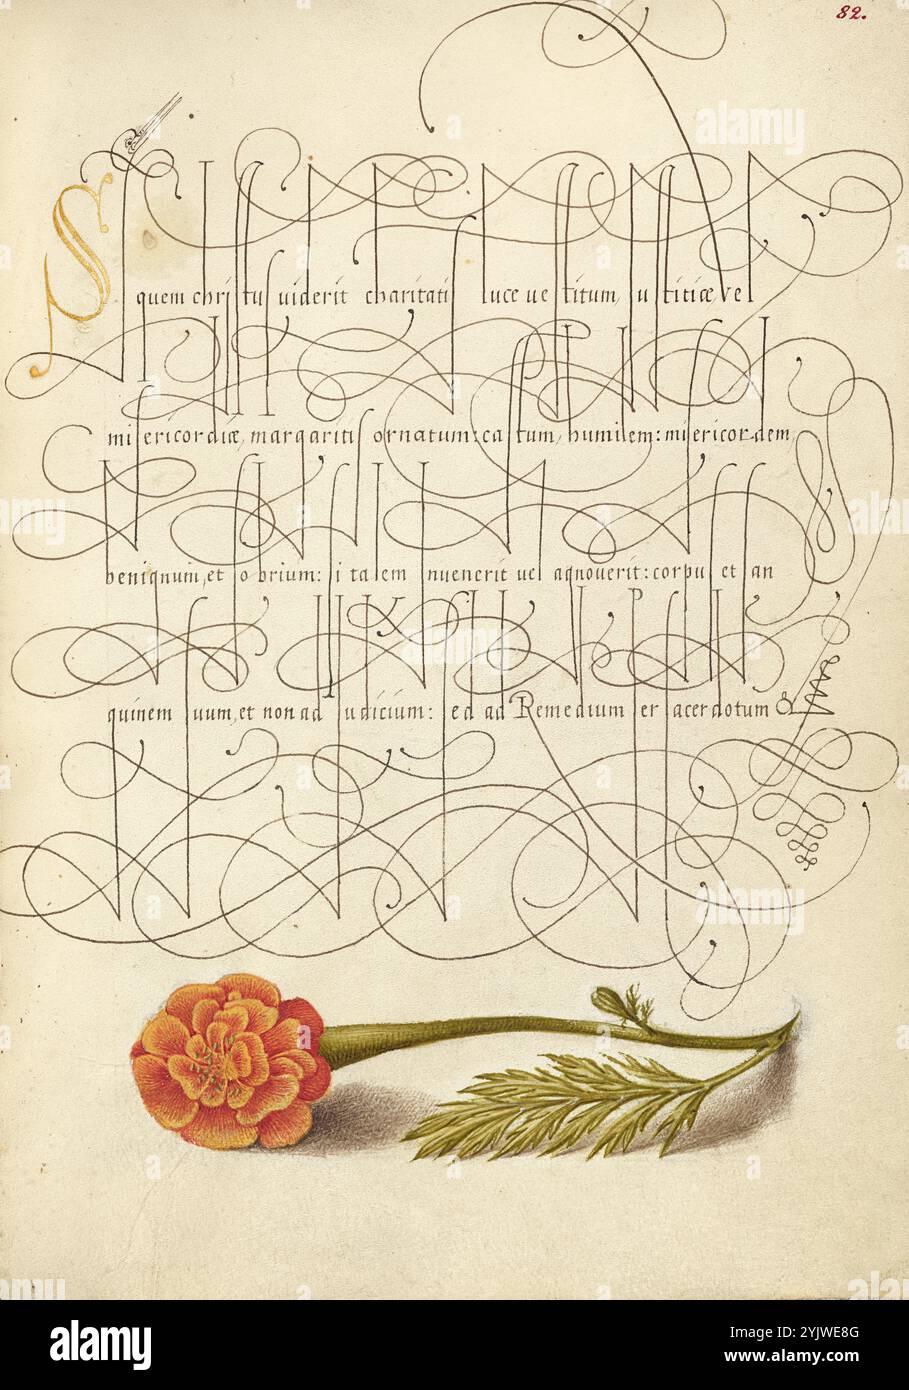 82.
Si quem christus viderit charitatis luce vestitum, iustitiæ, vel
misericordiæ, margaritis ornatum: castum, humilem: misericordem,
benignum, et sobrium: si talem invenerit vel agnoverit: corpus et san
quinem suum, et non ad iudicium: sed ad Remedium per sacerdotum
alamy
Image ID: 2YJWE8G
www.alamy.com